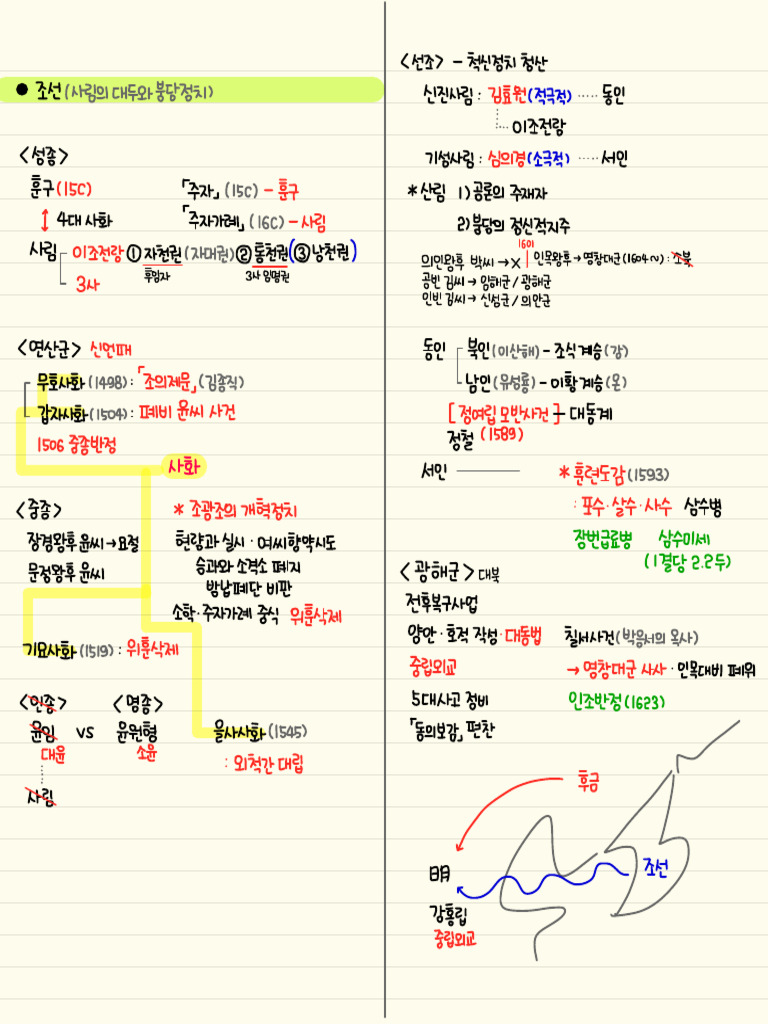 ● 조선 (사림의 대두와 붕당정치)
<성종>
훈구 (15C) 「주자」 (15C) - 훈구
↕ 4대 사화 「주자가례」 (16C) - 사림
사림 이조전랑 ① 자천권 (자대권) ② 통청권 (③ 낭천권)
후임자 3사 임명권
3사
<연산군> 신언패
무오사화 (1498) : 「조의제문」 (김종직)
갑자사화 (1504) : 폐비 윤씨 사건
1506 중종반정
사화
<중종> * 조광조의 개혁정치
장경왕후 윤씨 → 요절 현량과 실시 · 여씨향약시도
문정왕후 윤씨 승과와 소격소 폐지
방납폐단 비판
소학 · 주자가례 중식 위훈삭제
기묘사화 (1519) : 위훈삭제
<인종> <명종>
윤임 vs 윤원형 을사사화 (1545)
대윤 소윤 : 외척간 대립
사림
<선조> - 척신정치 청산
신진사림 : 김효원 (적극적) ····· 동인
이조전랑
기성사림 : 심의겸 (소극적) ····· 서인
* 산림 1) 공론의 주재자
2) 붕당의 정신적지주
1601
의인왕후 박씨 → X 인목왕후 → 영창대군 (1604~) : 소북
공빈 김씨 → 임해군 / 광해군
인빈 김씨 → 신성군 / 의안군
동인 북인 (이산해) - 조식 계승 (강)
남인 (유성룡) - 이황 계승 (온)
[정여립 모반사건] - 대동계
정철 (1589)
서인 * 훈련도감 (1593)
: 포수 · 살수 · 사수 삼수병
장번급료병 삼수미세
(1결당 2.2두)
<광해군> 대북
전후복구사업
양안 · 호적 작성 · 대동법 칠서사건 (박응서의 옥사)
중립외교 → 영창대군 사사 · 인목대비 폐위
5대사고 정비 인조반정 (1623)
「동의보감」 편찬
후금
明 조선
강홍립
중립외교